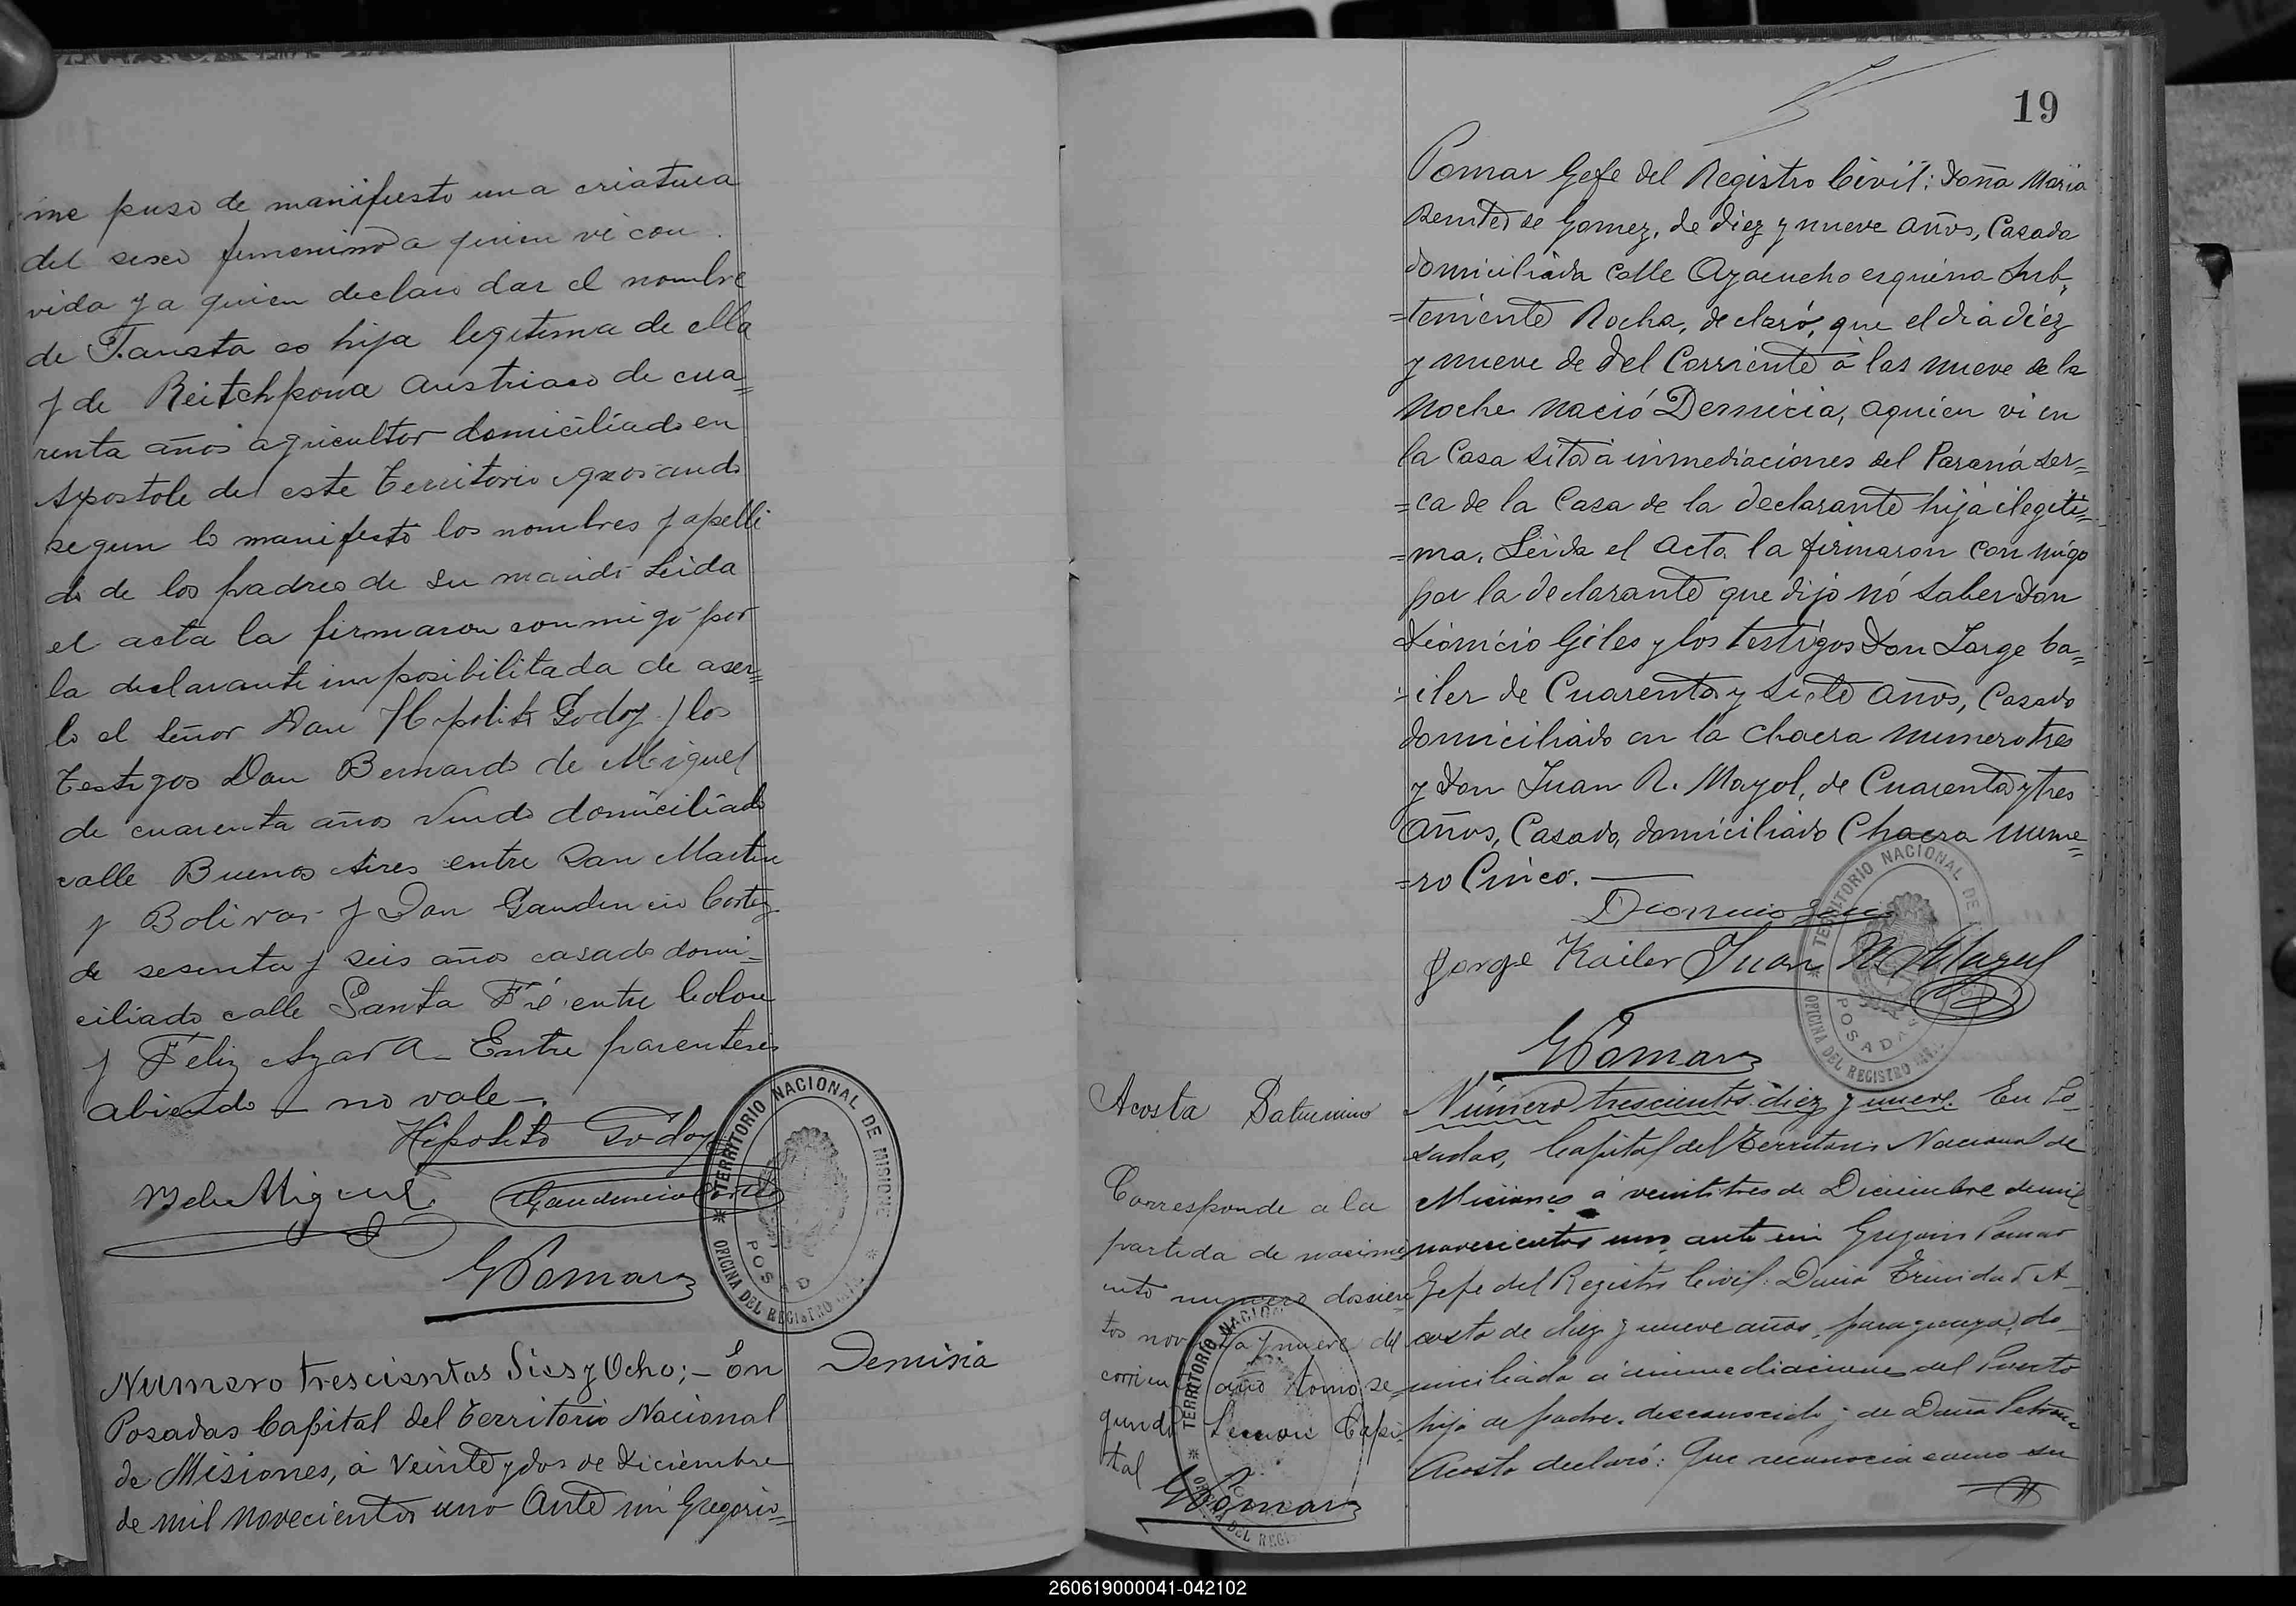 me puso de manifiesto una criatura
del sexo femenino a quien vi con
vida y a quien declaro dar el nombre
de Fausta es hija legitima de ella
y de Reitchpowa Austriaco de cua=
renta años agricultor domiciliado en
Apostole de este Territorio
segun lo manifesto los nombres y apelli
do de los padres de su marido Leida
el acta la firmaron conmigo por
la declarante imposibilitada de aser=
lo el señor Don Hipolito Godoy y los
Testigos Don Bernardo de Miguel
de cuarenta años viudo domiciliado
calle Buenos Aires entre San Martin
y Bolivar y Don Gaudencio Cortez
de sesenta y seis años casado domi=
ciliado calle Santa Fé entre Colon
y Feliz Azara_ Entre parentesis
abiendo _ no vale_.
Hipolito Godoy
B de Miguel Gaudencio Cortez
GPomar
TERRITORIO NACIONAL DE MISIONES
POSADAS
* OFICINA DEL REGISTRO CIVIL *
Numero trescientos Dies y Ocho;_ En
Posadas Capital del Territorio Nacional
de Misiones, á Veinte y dos de Diciembre
de mil Novecientos uno Ante mi Gregorio=
Demisia
19
Pomar Gefe del Registro Civil: Doña Maria
Benites de Gomez, de diez y nueve años, Casada
domiciliada Calle Ayacucho esquina Sub,
=teniente Rocha, declaró, que el dia diez
y nueve de del Corriente á las nueve de la
Noche Nació Demicia, aquien vi en
la Casa sita á inmediaciones del Paraná ser=
=ca de la Casa de la declarante hija ilegiti=
=ma. Leida el acta la firmaron con migo
por la declarante que dijo nó Saber Don
Dionicio Giles y los testigos Don Jorge Ca=
=iler de Cuarenta y Siete años, Casado
domiciliado en la Chacra numero tres
y Don Juan R. Mayol, de Cuarenta y tres
años, Casado, domiciliado Chacra nume=
=ro Cinco.
Dionicio
Jorge Kailer Juan R Mayol
GPomar
TERRITORIO NACIONAL DE
POSADAS
* OFICINA DEL REGISTRO CIVIL
Acosta Saturnino
Corresponde a la
partida de nacimi
ento numero doscien
tos noventa y nueve del
corriente año tomo se
gundo Seccion Capi
tal
GPomar
TERRITORIO NACIONAL
* OFICINA DEL REGI
Número trescientos diez y nueve. En Po_
sadas, Capital del Territorio Nacional de
Misiones á veintitres de Diciembre de mil
novecientos uno, ante mi Gregorio Pomar
Gefe del Registro Civil: Doña Trinidad A_
costa de diez y nueve años, paraguaya, do_
miciliada á inmediaciones del Puerto
hija de padre desconocido y de Doña Petrona
Acosta declaró: Que reconocia como su
260619000041-042102